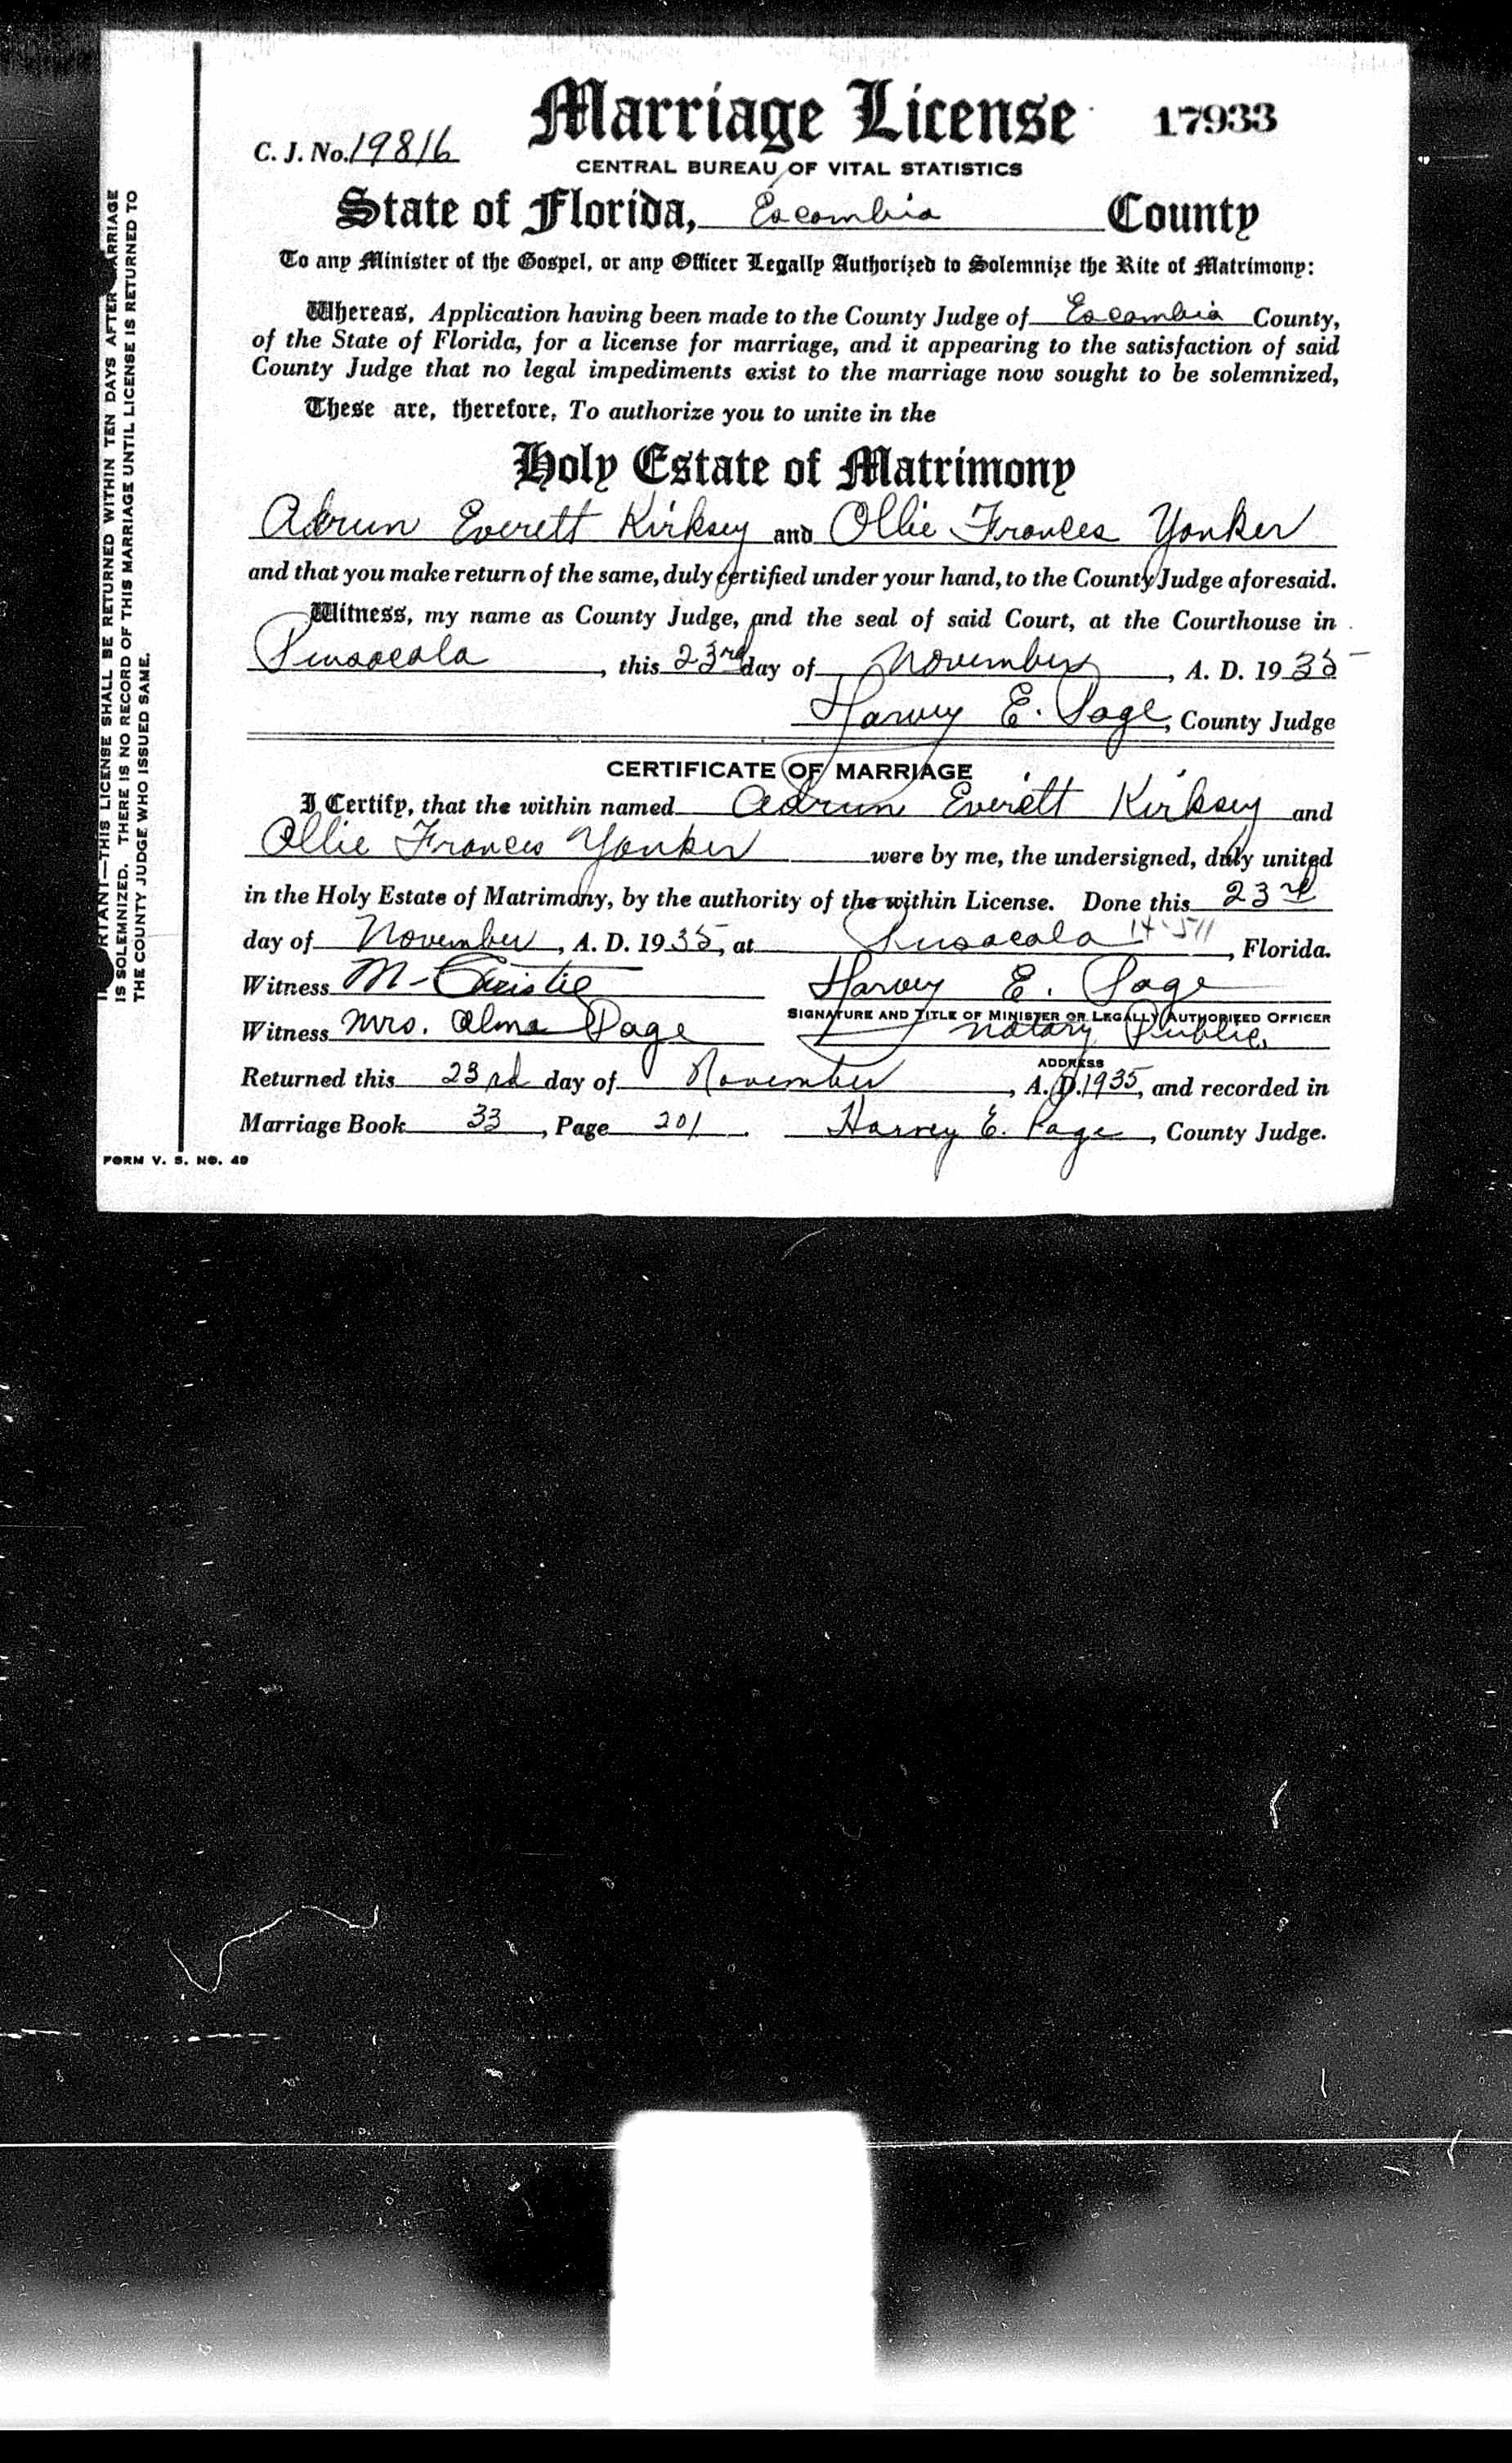 Marriage License 17933
C. J. No. 19816
CENTRAL BUREAU OF VITAL STATISTICS
State of Florida, Escambia County
To any Minister of the Gospel, or any Officer Legally Authorized to Solemnize the Rite of Matrimony:
Whereas, Application having been made to the County Judge of Escambia County,
of the State of Florida, for a license for marriage, and it appearing to the satisfaction of said
County Judge that no legal impediments exist to the marriage now sought to be solemnized,
These are, therefore, To authorize you to unite in the
Holy Estate of Matrimony
Everett Kirksey and Ollie Frances Yonker
and that you make return of the same, duly certified under your hand, to the County Judge aforesaid.
Witness, my name as County Judge, and the seal of said Court, at the Courthouse in
Pensacola, this 23rd day of November, A. D. 1935
Harvey E. Page, County Judge
CERTIFICATE OF MARRIAGE
I Certify, that the within named Everett Kirksey and
Ollie Frances Yonker were by me, the undersigned, duly united
in the Holy Estate of Matrimony, by the authority of the within License. Done this 23rd
day of November, A. D. 1935, at Pensacola 14-511, Florida.
Witness M. Christie Harvey E. Page
SIGNATURE AND TITLE OF MINISTER OR LEGALLY AUTHORIZED OFFICER
Witness Mrs. Alma Page Notary Public.
ADDRESS
Returned this 23rd day of November, A. D. 1935, and recorded in
Marriage Book 33, Page 201. Harvey E. Page, County Judge.
FORM V. S. NO. 40
RTANT—THIS LICENSE SHALL BE RETURNED WITHIN TEN DAYS AFTER ARRIAGE
IS SOLEMNIZED. THERE IS NO RECORD OF THIS MARRIAGE UNTIL LICENSE IS RETURNED TO
THE COUNTY JUDGE WHO ISSUED SAME.